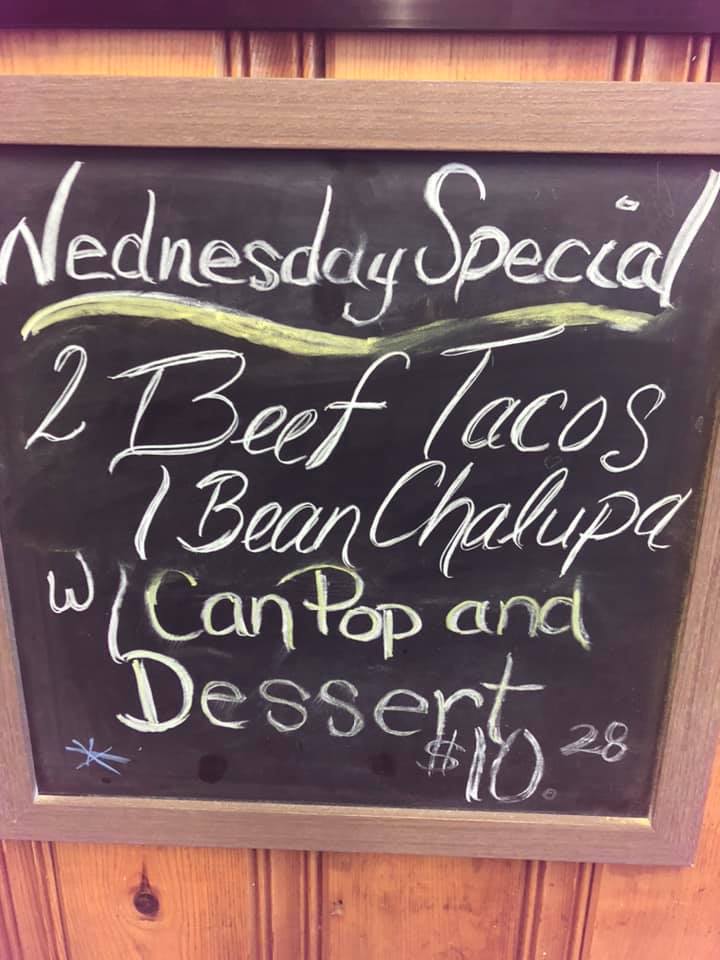 Wednesday Special
2 Beef Tacos
1 Bean Chalupa
w/ Can Pop and
Dessert
$10.28